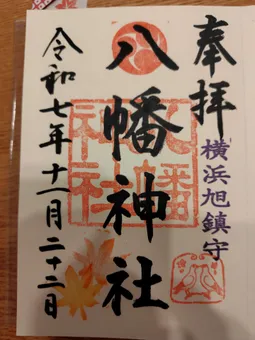 奉拝
横浜旭鎮守
八幡神社
八幡神社
令和七年十一月二十三日